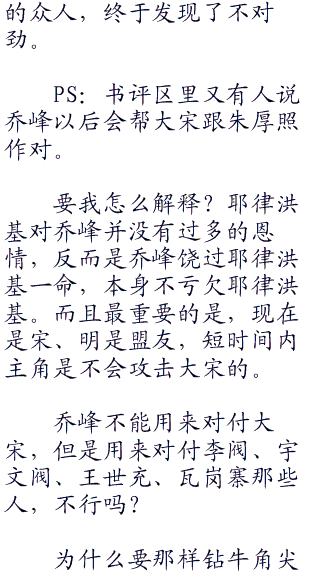 的众人，终于发现了不对
劲。
PS：书评区里又有人说
乔峰以后会帮大宋跟朱厚照
作对。
要我怎么解释？耶律洪
基对乔峰并没有过多的恩
情，反而是乔峰饶过耶律洪
基一命，本身不亏欠耶律洪
基。而且最重要的是，现在
是宋、明是盟友，短时间内
主角是不会攻击大宋的。
乔峰不能用来对付大
宋，但是用来对付李阀、宇
文阀、王世充、瓦岗寨那些
人，不行吗？
为什么要那样钻牛角尖